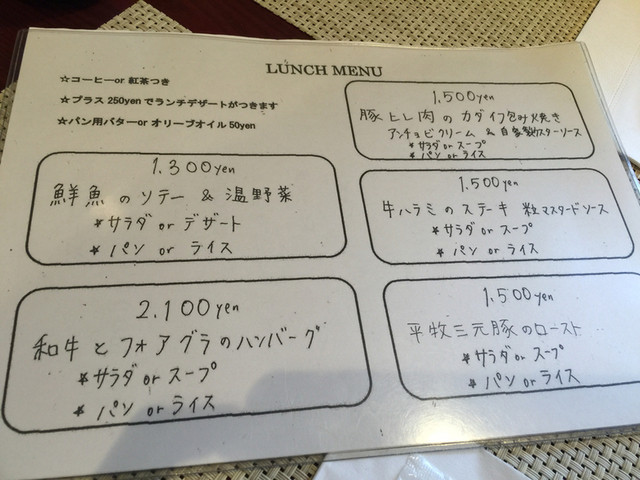 LUNCH MENU
☆コーヒーor 紅茶つき
☆プラス 250yen でランチデザートがつきます
☆パン用バターor オリーブオイル 50yen
1,300yen
鮮魚のソテー & 温野菜
* サラダ or デザート
* パン or ライス
2,100yen
和牛とフォアグラのハンバーグ
* サラダ or スープ
* パン or ライス
1,500yen
豚ヒレ肉のカダイフ包み焼き
アンチョビクリーム & 自家製スターソース
* サラダ or スープ
* パン or ライス
1,500yen
牛ハラミのステーキ 粒マスタードソース
* サラダ or スープ
* パン or ライス
1,500yen
平牧三元豚のロースト
* サラダ or スープ
* パン or ライス